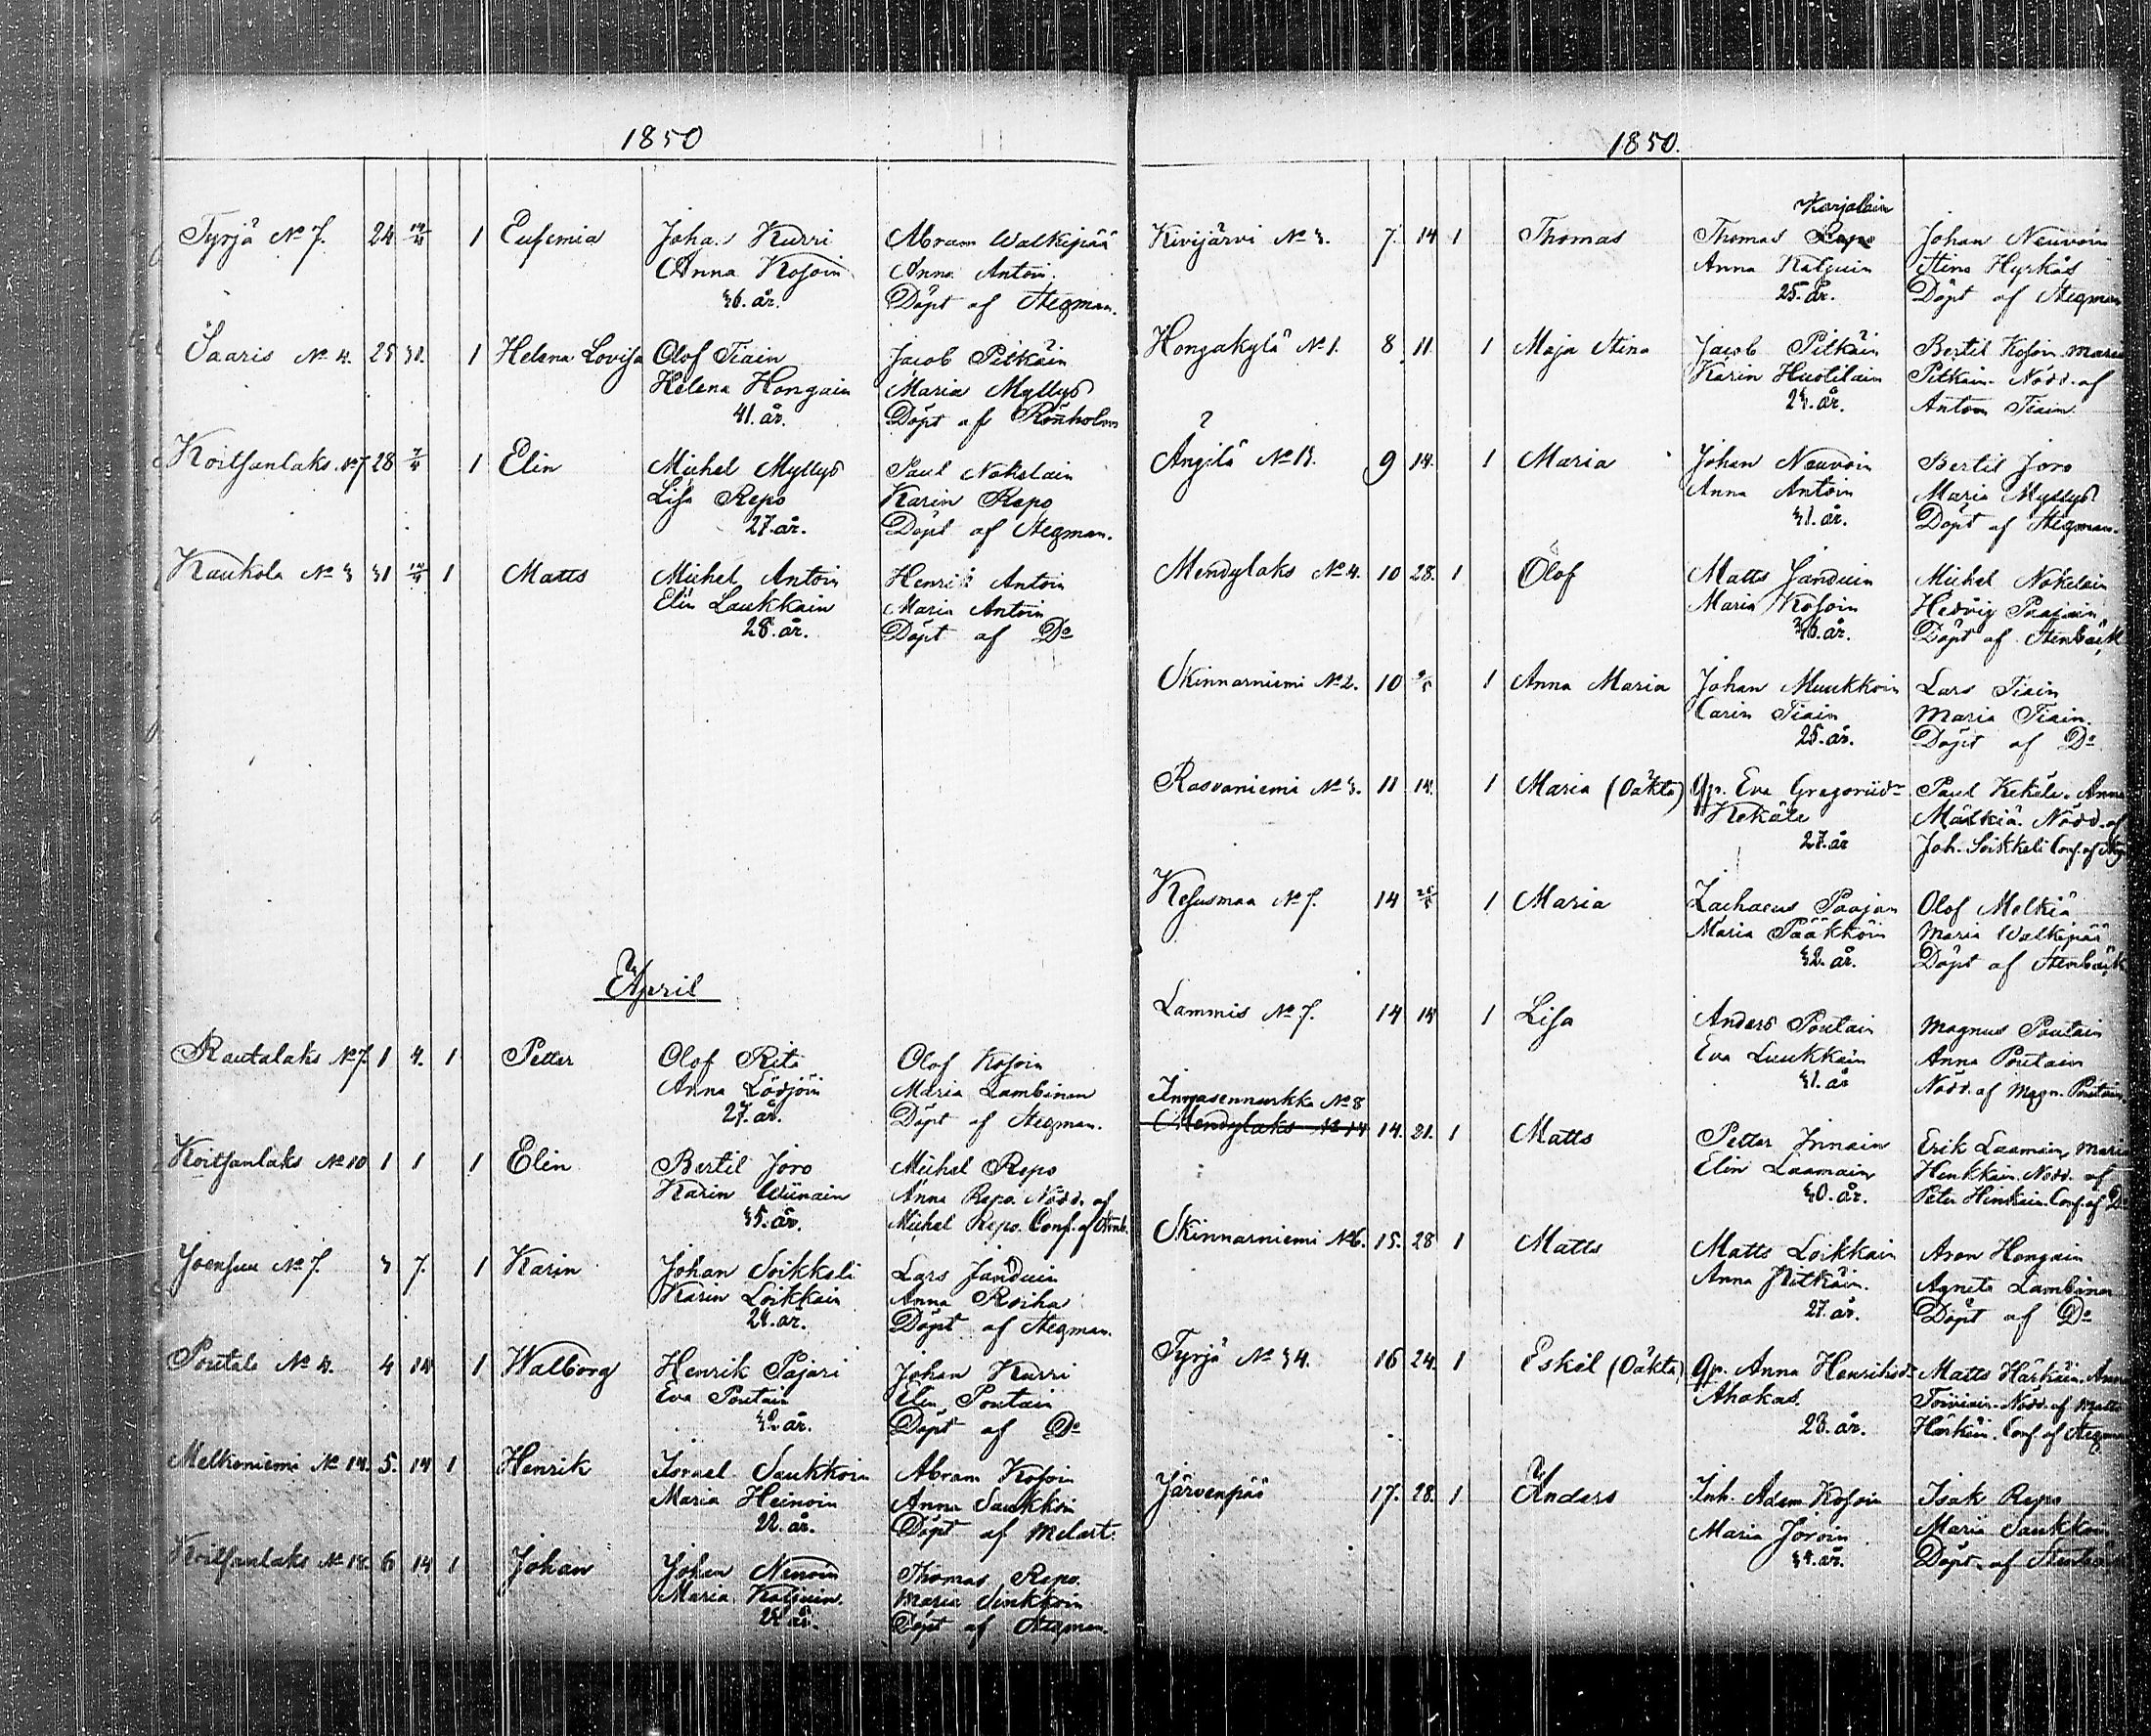 1850
Tyrjä No 7. 24 14/4 1 Eufemia Joha. Kurri Abram Walkipää
Anna Kosoin Anna Antoin.
36. år. Döpt af Stegman.
Saaris No 4. 25 31. 1 Helena Lovisa Olof Tiain Jacob Pitkäin
Helena Hongain Maria Myllys
41. år. Döpt af Rönholm
Koitsanlaks. No 7 28 7/4 1 Elin Michel Myllys Paul Nokelain
Lisa Repo Karin Repo
27. år. Döpt af Stegman.
Kaukola No 3 31 14/4 1 Matts Michel Antoin Henrik Antoin
Elin Laukkain Maria Antoin
28. år. Döpt af Do
April
Rautalaks No 7. 1 4. 1 Petter Olof Rite Olof Kosoin
Anna Lödjöin Maria Lambinen
27. år. Döpt af Stegman.
Koitsanlaks No 10 1 1 1 Elin Bertil Joro Michel Repo
Karin Wiinain Anna Repo. Nödd. af
35. år. Michel Repo. Conf. af Stenb.
Joensuu No 7. 3 7. 1 Karin Johan Soikkeli Lars Janduin
Karin Loikkain Anna Roiha
24. år. Döpt af Stegman.
Poutala No 4. 4 14 1 Walborg Henrik Pajari Johan Kurri
Eva Poutain Elin Poutain
år. Döpt af Do
Melkoniemi No 14. 5. 14 1 Henrik Israel Saukkoin Abram Kosoin
Maria Heinoin Anna Saukkoin
22. år. Döpt af Melart.
Koitsanlaks No 14. 6 14 1 Johan Johan Nenoin Thomas Repo.
Maria Katjuin. Maria Sinkkoin
år. Döpt af Stegman.
1850.
Karjalain
Kivijärvi No 3. 7. 14 1 Thomas Thomas Repo Johan Neuvoin
Anna Katjuin Stina Hyrkäs
25. år. Döpt af Stegman
Hongakylä No 1. 8 11. 1 Maja Stina Jacob Pitkäin Bertil Kosoin. Maria
Karin Huotilain Pitkäin. Nödd. af
23. år. Anton Tiain.
Angilä No 13. 9 14. 1 Maria Johan Neuvoin Bertil Joro
Anna Antoin Maria Myllys
31. år. Döpt af Stegman.
Mendylaks No 4. 10 28. 1 Olof Matts Janduin Michel Nokelain
Maria Kosoin Hedvig Paajain
36. år. Döpt af Stenbäck
Skinnarniemi No 2. 10 9/5 1 Anna Maria Johan Muukkoin Lars Tiain
Carin Tiain Maria Tiain.
25. år. Döpt af Do
Rasvaniemi No 3. 11 14. 1 Maria (Oäkta) Qp. Eva Gregoriid- Paul Kekäle. Anna
Kekäle Mälkiä. Nödd. af
27. år Joh. Soikkeli Conf. af Steg
Kesusmaa No 7. 14 25/5 1 Maria Zachaeus Paajan Olof Melkiä
Maria Pääkköin Maria Walkipää
32. år. Döpt af Stenbäck
Lammis No 7. 14 14 1 Lisa Anders Poutain Magnus Poutain
Eva Luukkain Anna Poutain
31. år Nödd. af Magn. Poutain
Innasennurkka No 8
Mendylaks No 14 14. 21. 1 Matts Petter Innain Erik Laamain, Maria
Elin Laamain Henkkain. Nödd. af
30. år. Peter Henkain. Conf. af Do
Skinnarniemi No 6. 15. 28 1 Matts Matts Loikkain Aron Hongain
Anna Pitkäin. Agneta Lambinen
27. år. Döpt af Do
Tyrjä No 34. 16 24. 1 Eskil (Oäkta) Qp. Anna Henriksd- Matts Härkäin. Anna
Ahokas. Toiviain. Nödd. af Matts
28. år. Härkäin. Conf. af Stegman
Järvenpää 17. 28. 1 Anders Inh. Adam Kosoin Isak Repo
Maria Joroin Maria Saukkoin
34. år. Döpt. af Stenbäck